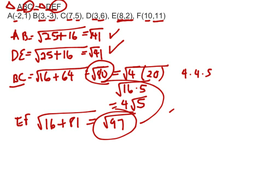 △ABC △DEF
A(-2,1) B(3,-3), C(7,5), D(3,6), E(8,2), F(10,11)
AB = √25+16 = √41 ✓
DE = √25+16 = √41 ✓
BC = √16+64 = √80 = √4(20) 4·4·5
√16·5
= 4√5
EF √16+81 = √97